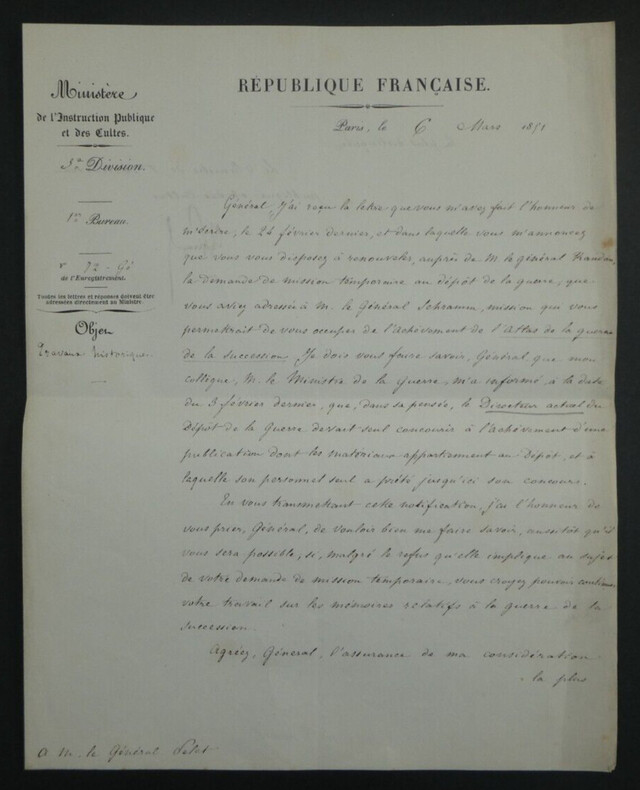 Ministère
de l'Instruction Publique
et des Cultes.
3me Division.
1er Bureau.
N° 72-Gé
de l'Enregistrement.
Toutes les lettres et réponses doivent être
adressées directement au Ministre
Objet
Travaux historiques
RÉPUBLIQUE FRANÇAISE.
Paris, le 6 Mars 1851
Général, J'ai reçu la lettre que vous m'avez fait l'honneur de
m'écrire, le 24 février dernier, et dans laquelle vous m'annoncez
que vous vous disposez à renouveler, auprès de M. le général Randon,
la demande de mission temporaire au dépôt de la guerre, que
vous aviez adressée à M. le Général Schramm, mission qui vous
permettrait de vous occuper de l'achèvement de l'Atlas de la guerre
de la succession. Je dois vous faire savoir, Général, que mon
collègue, M. le Ministre de la guerre, m'a informé, à la date
du 3 février dernier, que, dans sa pensée, le Directeur actuel du
Dépôt de la Guerre devait seul concourir à l'achèvement d'une
publication dont les matériaux appartiennent au Dépôt, et à
laquelle son personnel seul a prêté jusqu'ici son concours.
En vous transmettant cette notification, j'ai l'honneur de
vous prier, Général, de vouloir bien me faire savoir, aussitôt qu'il
vous sera possible, si, malgré le refus qu'elle implique au sujet
de votre demande de mission temporaire, vous croyez pouvoir continuer
votre travail sur les mémoires relatifs à la guerre de la
succession.
Agréez, Général, l'assurance de ma considération
la plus
A M. le Général Pelet